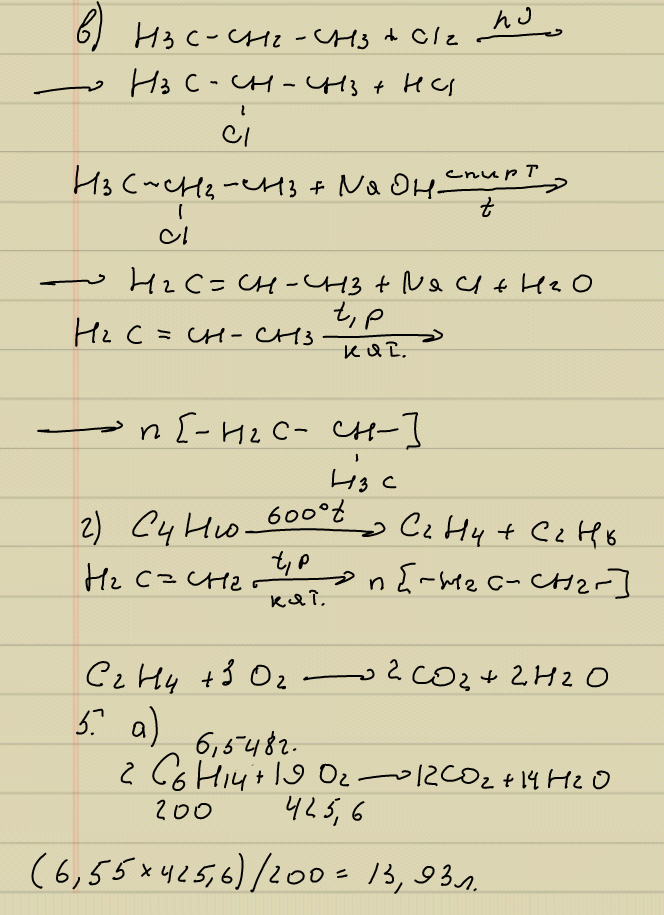 в) H3C-CH2-CH3 + Cl2 hν⟶
⟶ H3C-CH-CH3 + HCl
Cl
H3C-CH2-CH3 + NaOH спирт⟶
Cl t
⟶ H2C=CH-CH3 + NaCl + H2O
H2C=CH-CH3 t,p⟶
кат.
⟶ n[-H2C-CH-]
H3C
г) C4H10 600°t⟶ C2H4 + C2H6
H2C=CH2 t,p⟶ n[-H2C-CH2-]
кат.
C2H4 + 3O2 ⟶ 2CO2 + 2H2O
5. а)
6,548г.
2C6H14 + 19O2 ⟶ 12CO2 + 14H2O
200 425,6
(6,55×425,6)/200 = 13,93л.